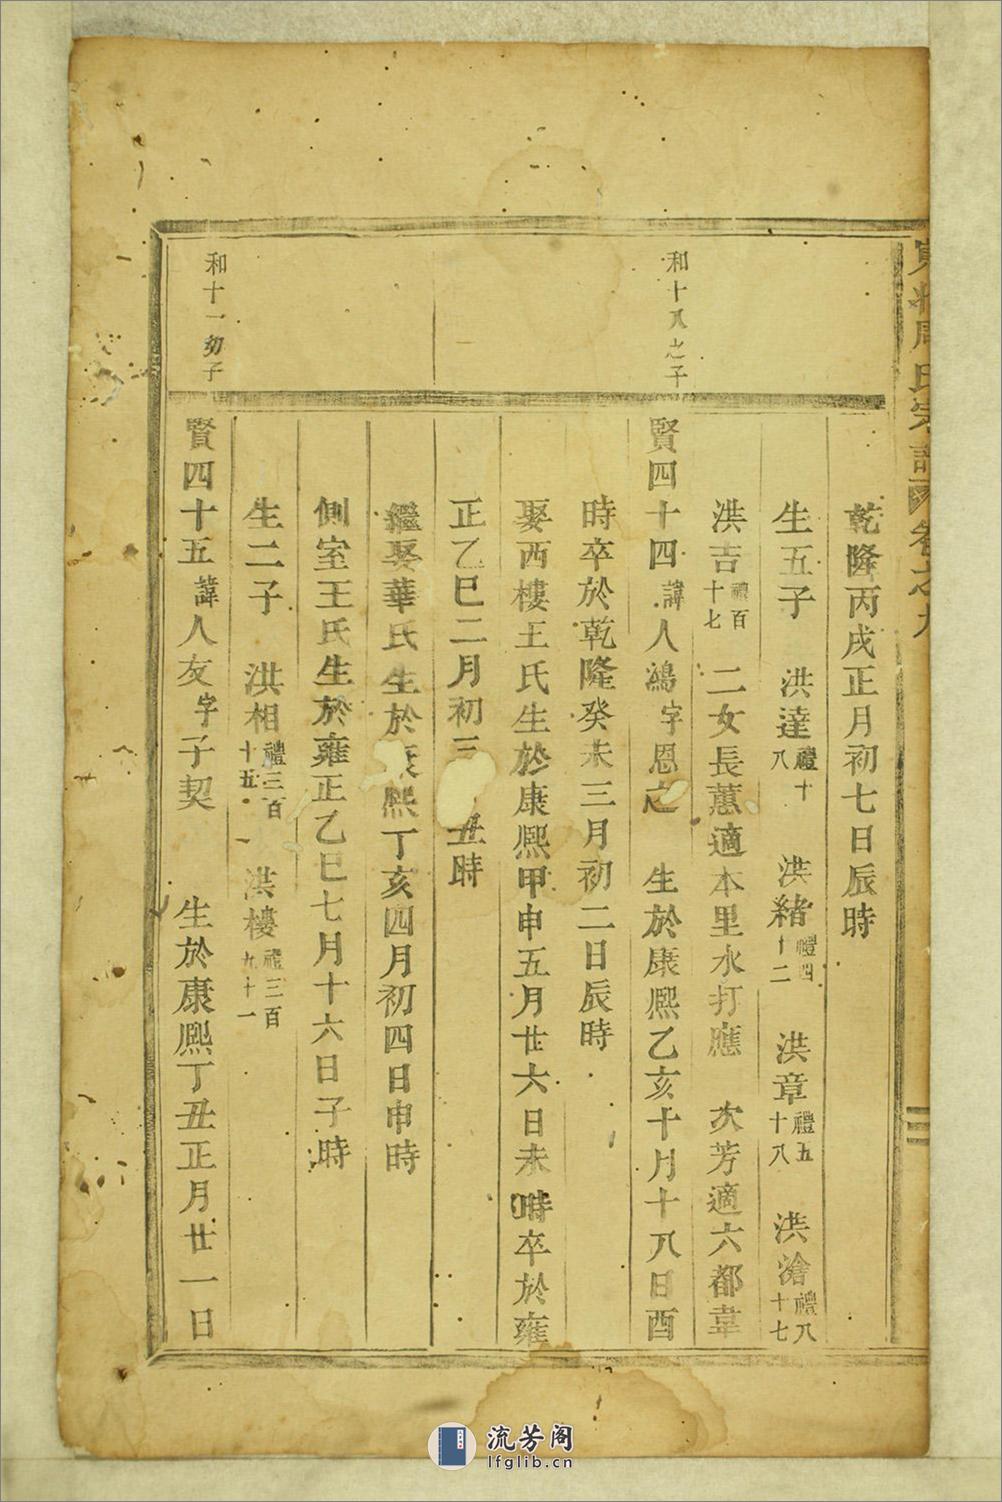 周氏宗譜 卷之九
乾隆丙戌正月初七日辰時
生五子 洪達禮十八 洪緒禮四十二 洪章禮五十八 洪澮禮八十七
洪吉禮百十七 二女長蕙適本里水打應 次芳適六都韋
和十八之子
賢四十四諱人鴻字恩之 生於康熙乙亥十月十八日酉
時卒於乾隆癸未三月初二日辰時
娶西樓王氏生於康熙甲申五月廿六日未時卒於雍
正乙巳二月初三 丑時
繼娶華氏生於康熙丁亥四月初四日申時
側室王氏生於雍正乙巳七月十六日子時
生二子 洪相禮三百十五 洪樓禮三百九十一
和十一幼子
賢四十五諱人友字子契 生於康熙丁丑正月廿一日
流芳阁
lfglib.cn